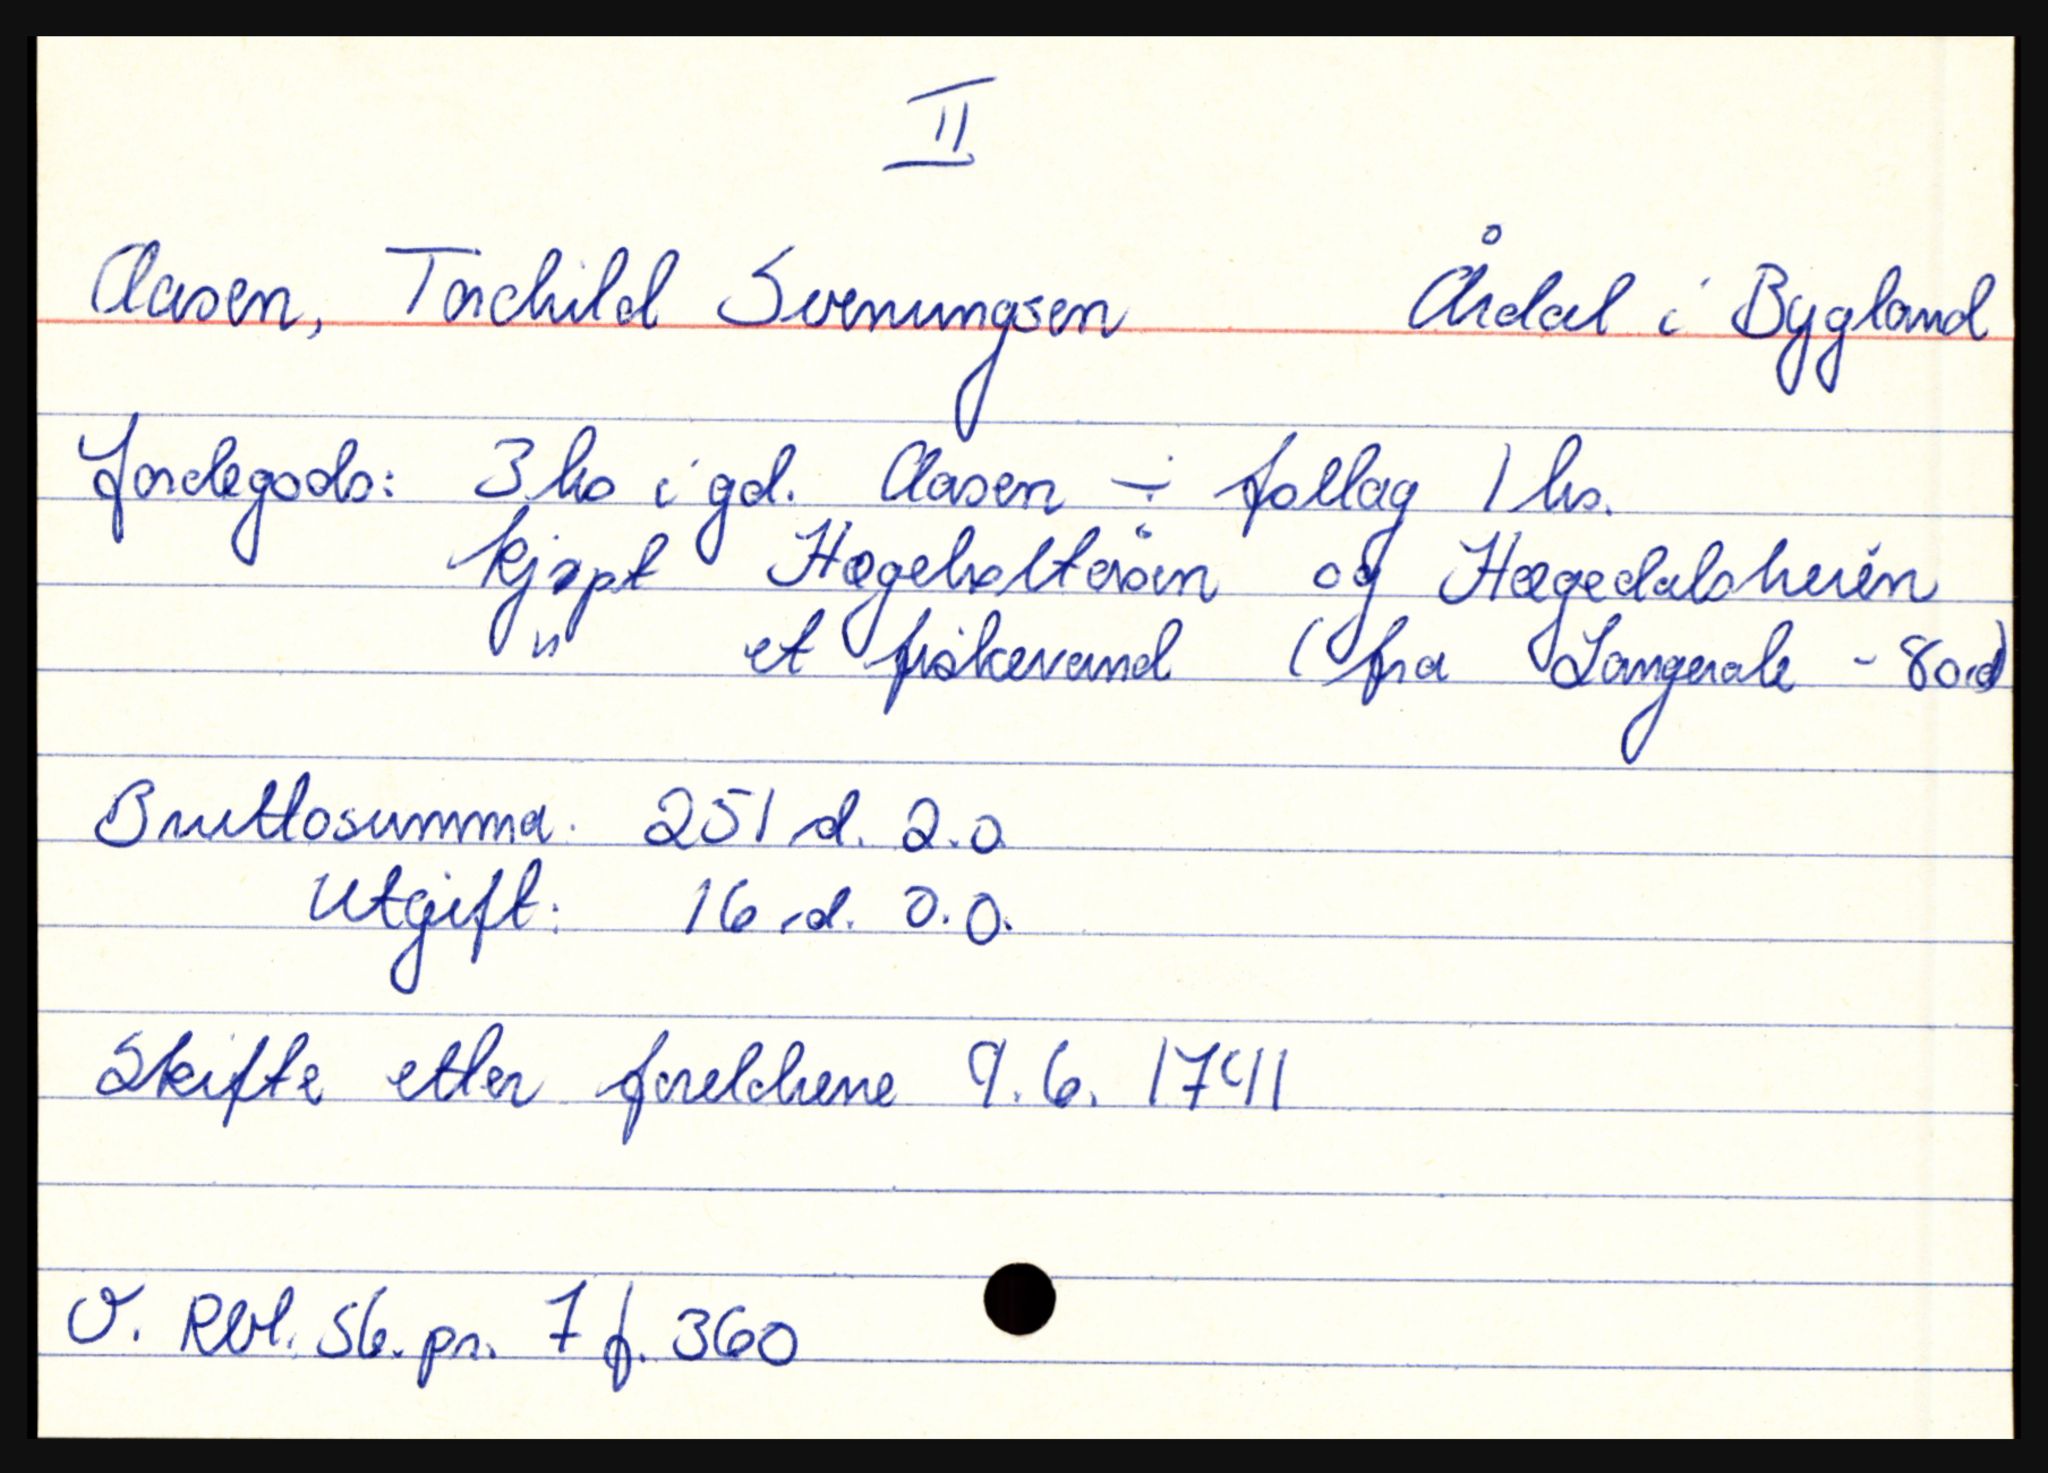 II
Aasen, Torchild Svenungsen Årdal i Bygland
Jordegods: 3 hs i gd. Aasen ÷ follag 1 hs.
kjøpt Hægeholtåsen og Hægedalsheien
" et fiskevand (fra Langerak - 80 d)
Bruttosumma: 251 d. 2.0
Utgift: 16 d. 0.0.
Skifte etter foreldrene 9.6. 1741
V. Rbl. Sb. pr. 7 f. 360